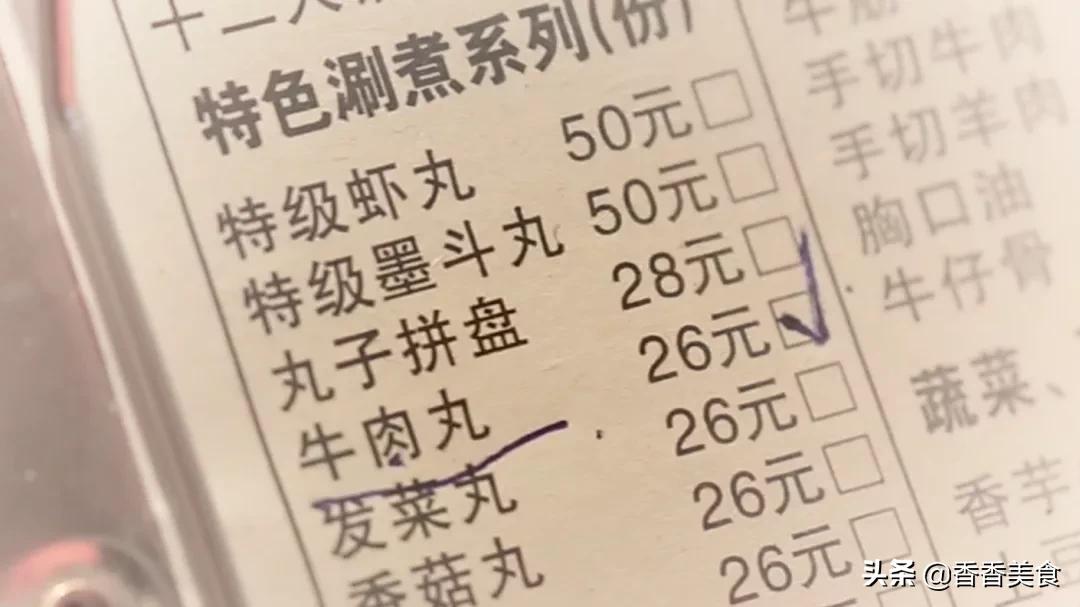 特色涮煮系列(份)
特级虾丸 50元□
特级墨斗丸 50元□
丸子拼盘 28元□
牛肉丸 26元☑
发菜丸 26元□
香菇丸 26元□
26元□
手切牛肉
手切羊肉
胸口油
牛仔骨
蔬菜、
香芋
土豆
头条 @香香美食